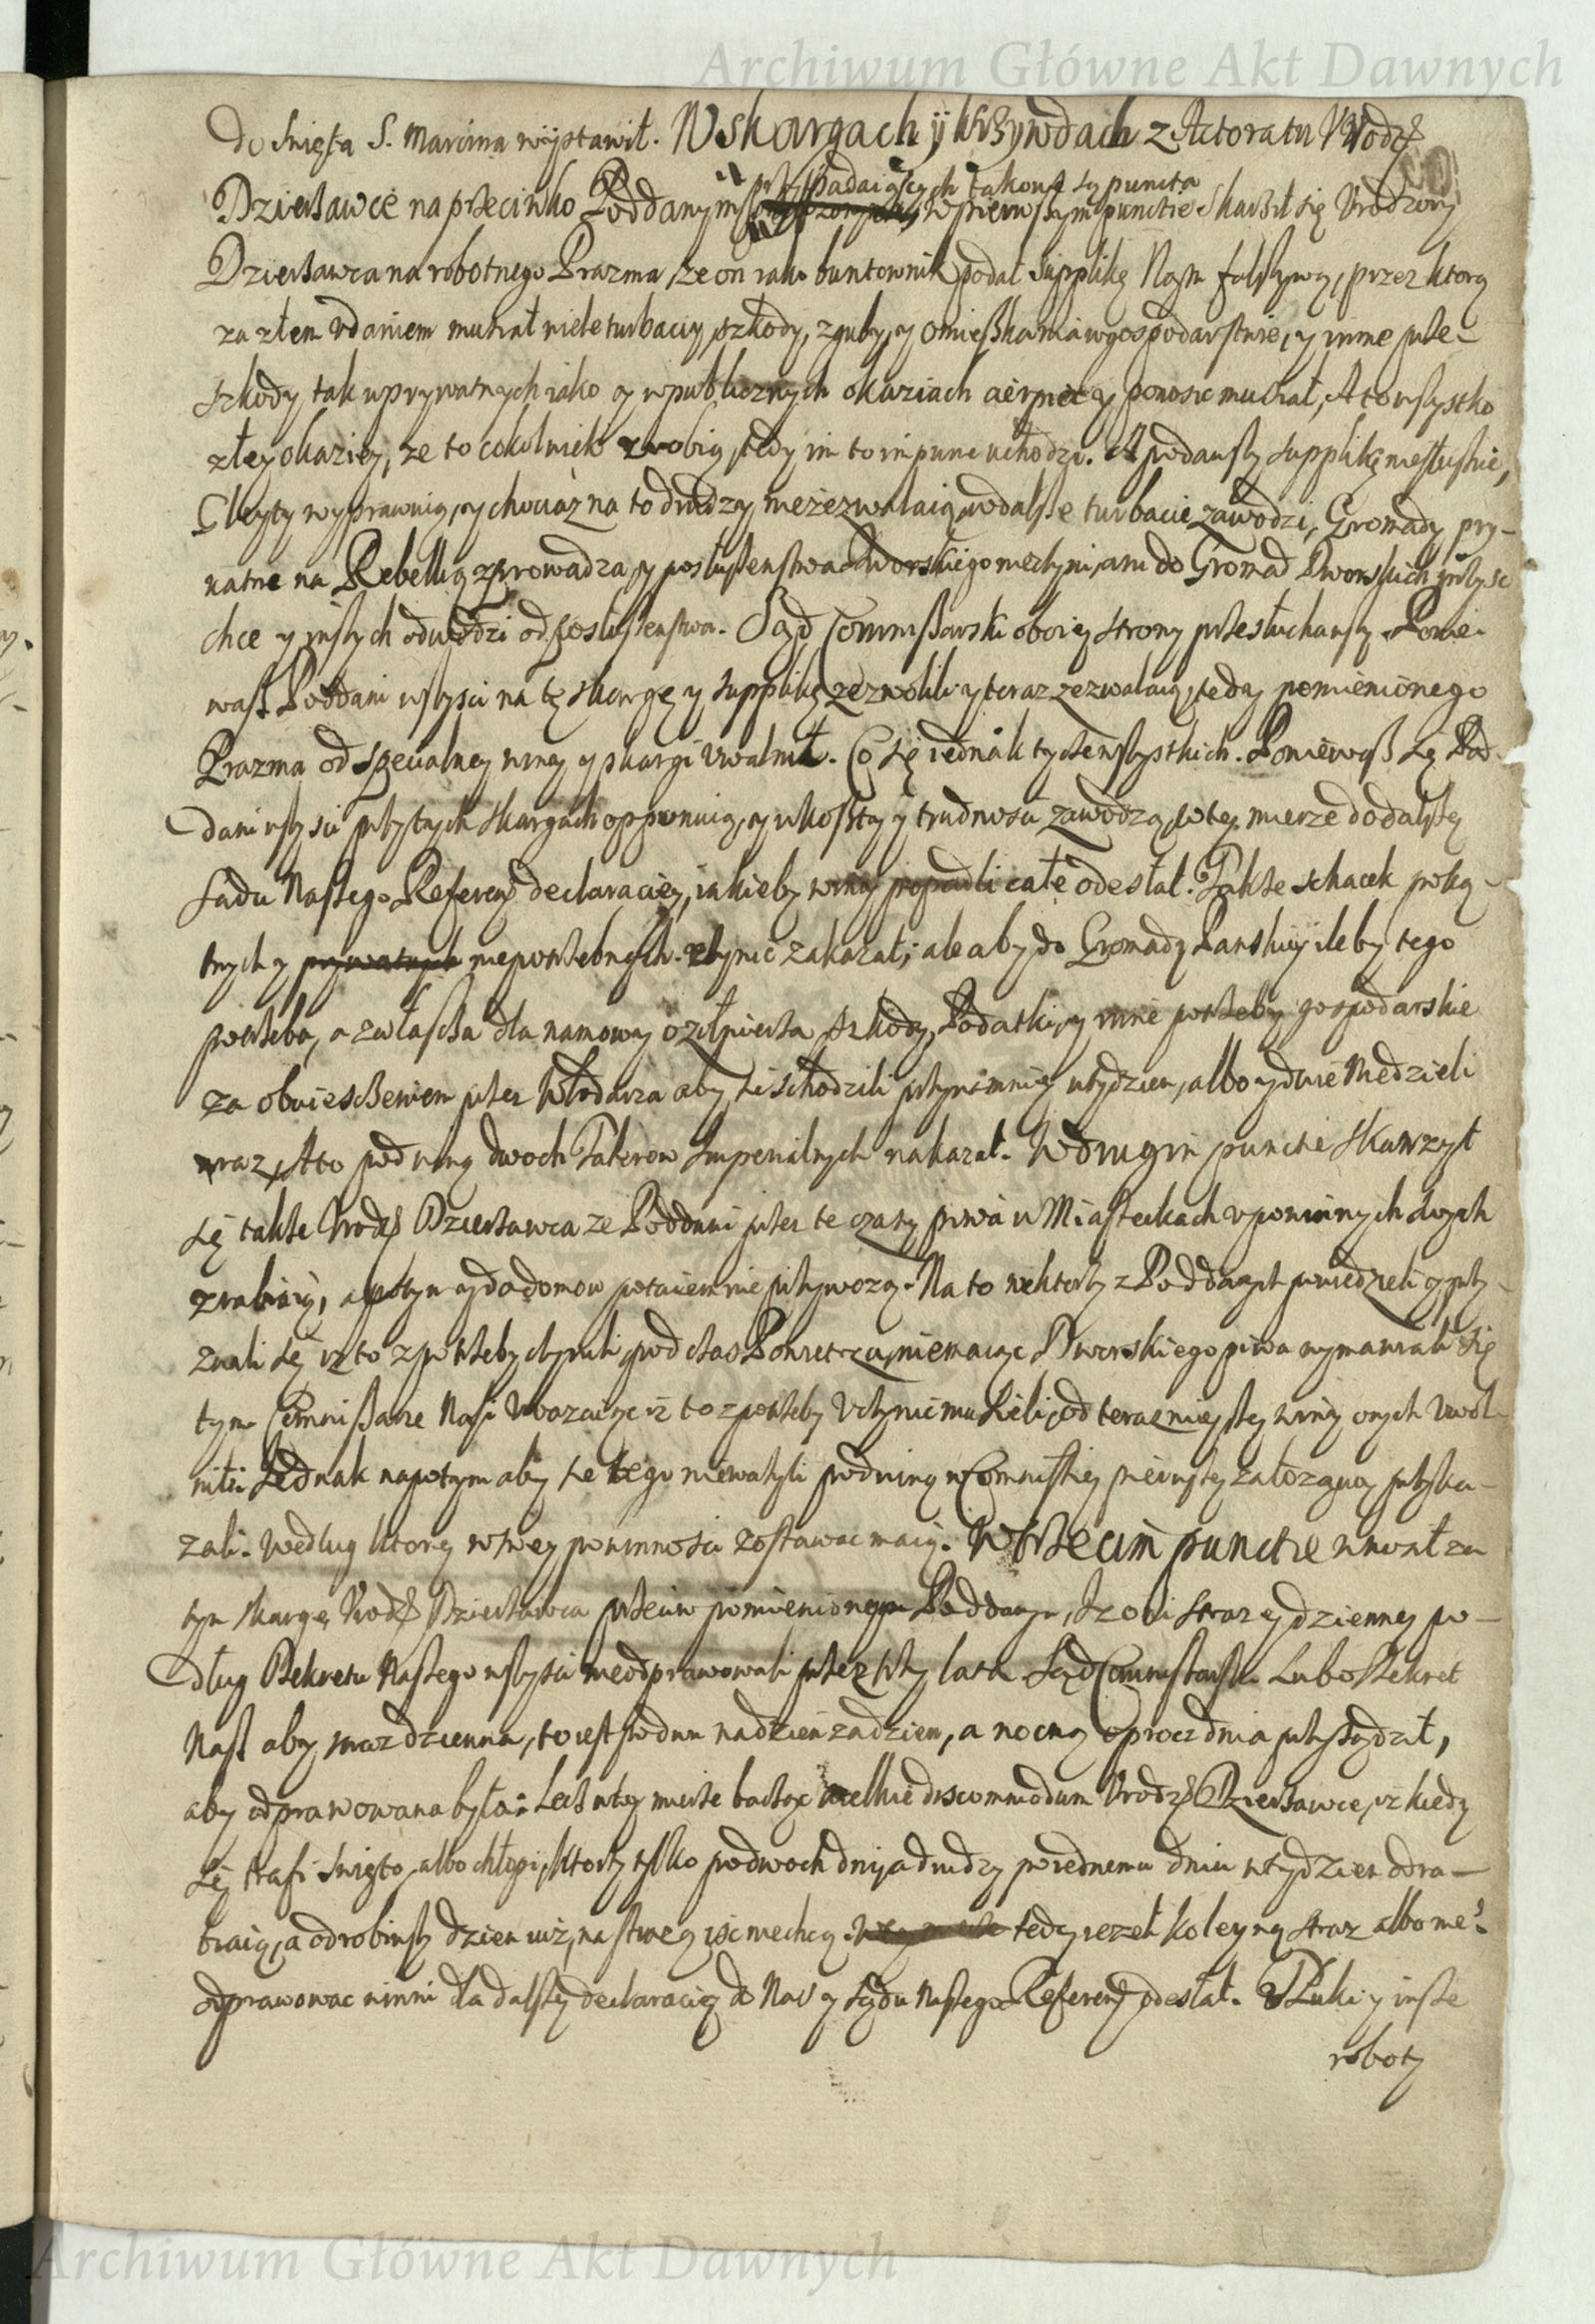 Archiwum Główne Akt Dawnych
do święta S. Marcina wystawił. W skargach y krzywdach z Actoratu Urodz
przypadaiących takowe są puncta
Dzierżawce naprzeciwko Poddanym w pierwszym punctie Skarżił się Urodzony
Dzierżawca na robotnego Prazma, że on iako buntownik podał Supplikę Nam fałszywą, przez ktorą
za złem udaniem musiał wiele turbaciy, szkody, zguby, y omieszkania w gospodarstwie, y inne prze-
szkody tak w prywatnych iako y w publicznych okaziach cierpieć y ponosic musiał, A to wszystko
z tey okaziey, że to cokolwiek zrobią, tedy im to impune uchodzi. A podawszy supplikę niesłusznie,
y chociaż na to drudzy niezezwalaią, w dalsze turbacie zawodzi, Gromady pry-
watne na Rebellią zprowadza, y posłuszenstwa Dworskiego nieczyni, ani do Gromad Dworskich przysc
chce y inszych odwodzi od posłuszenstwa. Sąd Commissarski oboiey strony przesłuchawszy. Ponie-
wasz Poddani wszysci na tę skargę y supplikę zezwolili y teraz zezwalaią, tedy pomienionego
Prazma od specialney winy y skargi uwalnił. Co się iednak tycze wszystkich. Ponieważ się Pod-
dani wszysci przy tych skargach opponuią, y w koszty y trudnosci zawodzą, w tey mierze do dalszey
Sądu Naszego Referend declaraciey, iakieby winy popadli całe odesłał. Także schacek poką-
tnych y prywatnych niepotrzebnych czynic zakazał; ale aby do Gromady Panskiy ileby tego
potrzeba, a zwłaszcza dla namowy o szkody, Podatki, y inne potrzeby gospodarskie
za obwieszczeniem przez Włodarza aby się schodzili przynamniey w tydzien, albo y dwie Niedzieli
raz, A to pod winą dwoch Talerow Imperialnych nakazał. W drugim punctie Skarzył
się także Urodz Dzierżawca że Poddani przez te czasy piwa w Miasteckach upominnych
zrabiaią, a potym y do domow potaiemnie przywozą. Na to niektorzy z Poddanych powiedzieli y przy-
znali się iż to z potrzeby czynili, pod czas Powietrza, niemaiąc Dworskiego piwa wymawiali się
tym Commissarze Nasi Uwazaiąc iż to z potrzeby Uczynic musieli, od teraznieyszey winy onych Uwol-
nili. Jednak napotym aby się tego niewazyli pod winą w Commissiey pierwszey załozoną przyka-
zali. Według ktorey w swey powinnosci zostawac maią. W trzecim punctie wnosił za
tym skargę Urodz Dzierżawca przeciw pomienionym Poddanym, Iż oni strazey dzienney po-
dług Dekretu Naszego wszysci nieodprawowali przez trzy lata. Sąd Commissarski Lubo Dekret
Nasz aby straz dzienna, to iest po dniu na dzien za dzien, a nocną oprocz dnia przysądził,
aby odprawowana była: Lecz w tey mierze bacząc wielkie discommodum Urodz Dzierżawce, iż kiedy
się trafi święto, albo chłopi, ktorzy tylko po dwoch dni, a drudzy po iednemu dniu w tydzien odra-
biaią, a odrobiwszy dzien iuż, na strzeżą isc niechcą. tedy iezeli koleyną straz albo nie?
odprawowac winni dla dalszey declaraciey do Nas y Sądu Naszego Referend odesłał. Tłuki y insze
roboty
Archiwum Główne Akt Dawnych